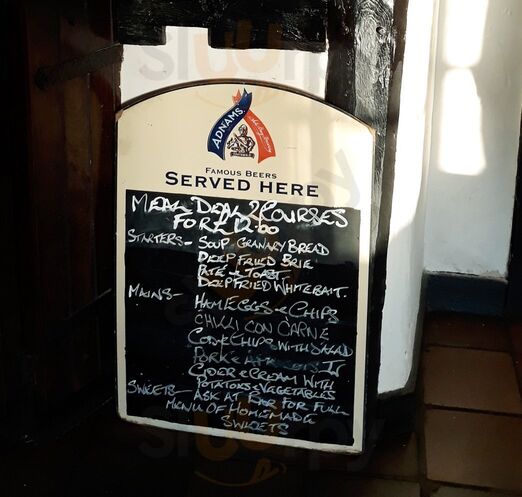 ADNAMS
FAMOUS BEERS
SERVED HERE
MEAL DEAL 2 COURSES
FOR £12.00
STARTERS- SOUP GRANARY BREAD
DEEP FRIED BRIE
PATE & TOAST
DEEP FRIED WHITEBAIT.
MAINS- HAM EGGS & CHIPS
CHILLI CON CARNE
CHIPS WITH SALAD
PORK & IN
CIDER & CREAM WITH
POTATOES & VEGETABLES
SWEETS- ASK AT BAR FOR FULL
MENU OF HOMEMADE
SWEETS